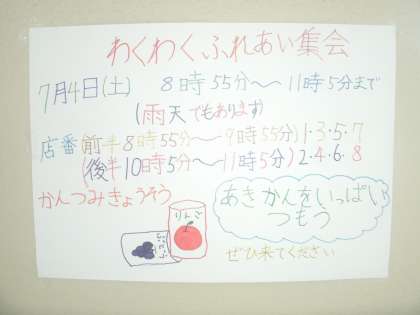 わくわくふれあい集会
7月4日(土) 8時55分～11時5分まで
(雨天でもあります)
店番 前半8時55分～9時55分)1・3・5・7
(後半10時5分～11時5分)2・4・6・8
かんつみきょうそう
あきかんをいっぱい
つもう
りんご
ぶどう
ぜひ来てください